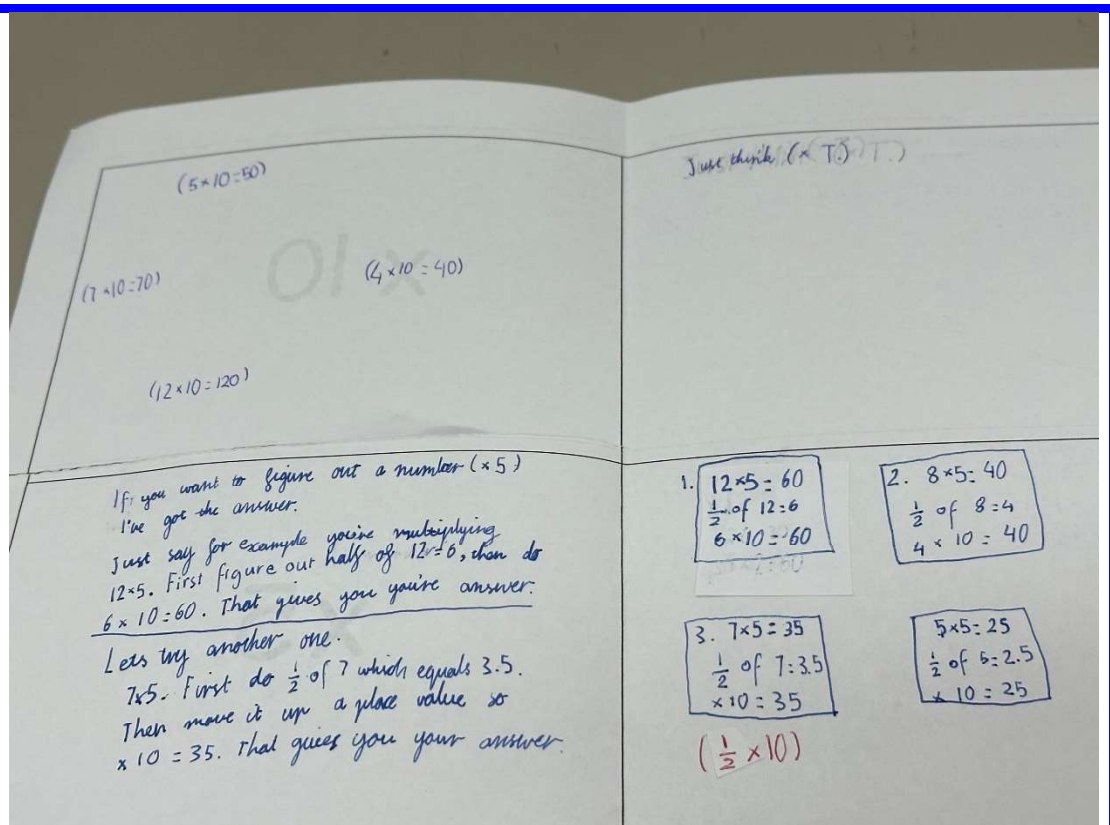 (5×10=50)
(7×10=70)
(4×10=40)
(12×10=120)
Just think (× T.)
×10
If you want to figure out a number (×5)
I've got the answer.
Just say for example you're multiplying
12×5. First figure out half of 12=6, then do
6×10=60. That gives you you're answer.
Lets try another one.
7×5. First do ½ of 7 which equals 3.5.
Then move it up a place value so
×10=35. That gives you your answer.
1. 12×5=60
½ of 12=6
6×10=60
2. 8×5=40
½ of 8=4
4×10=40
3. 7×5=35
½ of 7=3.5
×10=35
5×5=25
½ of 5=2.5
×10=25
(½ ×10)